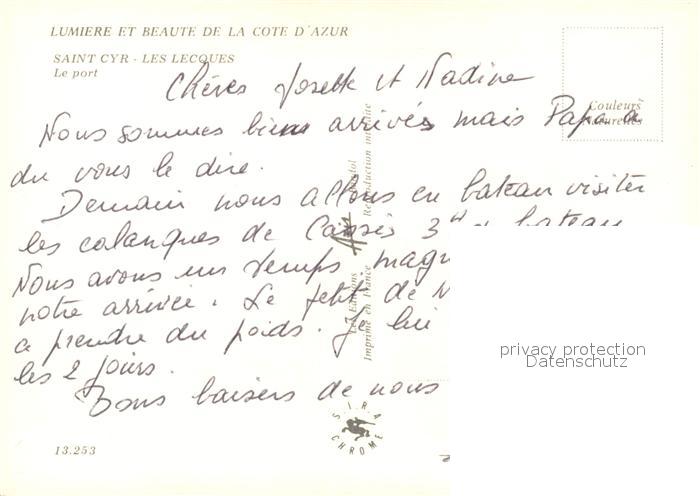 LUMIERE ET BEAUTE DE LA COTE D'AZUR
SAINT CYR - LES LECQUES
Le port
Couleurs
Naturelles
Chères Josette et Nadine
Nous sommes bien arrivés mais Papa a
du vous le dire.
Demain nous allons en bateau visiter
les calanques de Cassis 3H de bateau
Nous avons un temps magn
notre arrivée. Le petit de N
a prendre du poids. Je lui
les 2 jours.
Bons baisers de nous
Les Editions
Imprimé en France
Reproduction interdite
S.I.R.A.
CHROME
13.253
privacy protection
Datenschutz